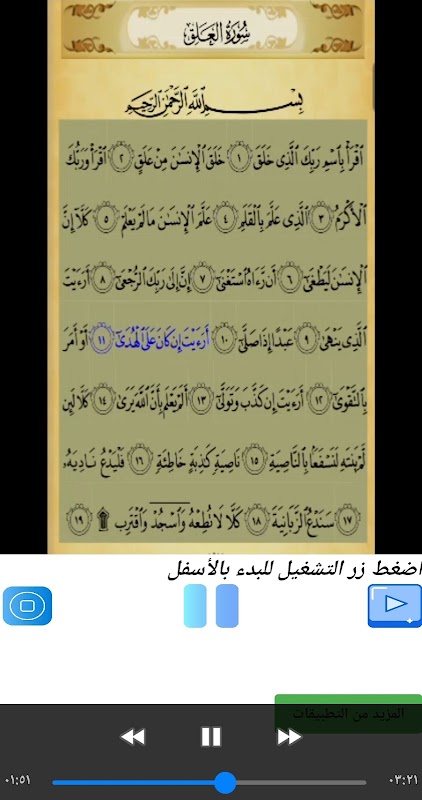 سُورَةُ الْعَلَقِ
بِسْمِ ٱللَّهِ ٱلرَّحْمَٰنِ ٱلرَّحِيمِ
ٱقْرَأْ بِٱسْمِ رَبِّكَ ٱلَّذِى خَلَقَ ١ خَلَقَ ٱلْإِنسَٰنَ مِنْ عَلَقٍ ٢ ٱقْرَأْ وَرَبُّكَ
ٱلْأَكْرَمُ ٣ ٱلَّذِى عَلَّمَ بِٱلْقَلَمِ ٤ عَلَّمَ ٱلْإِنسَٰنَ مَا لَمْ يَعْلَمْ ٥ كَلَّآ إِنَّ
ٱلْإِنسَٰنَ لَيَطْغَىٰٓ ٦ أَن رَّءَاهُ ٱسْتَغْنَىٰٓ ٧ إِنَّ إِلَىٰ رَبِّكَ ٱلرُّجْعَىٰٓ ٨ أَرَءَيْتَ
ٱلَّذِى يَنْهَىٰ ٩ عَبْدًا إِذَا صَلَّىٰٓ ١٠ أَرَءَيْتَ إِن كَانَ عَلَى ٱلْهُدَىٰٓ ١١ أَوْ أَمَرَ
بِٱلتَّقْوَىٰٓ ١٢ أَرَءَيْتَ إِن كَذَّبَ وَتَوَلَّىٰٓ ١٣ أَلَمْ يَعْلَم بِأَنَّ ٱللَّهَ يَرَىٰ ١٤ كَلَّا لَئِن
لَّمْ يَنتَهِ لَنَسْفَعًۢا بِٱلنَّاصِيَةِ ١٥ نَاصِيَةٍ كَٰذِبَةٍ خَاطِئَةٍ ١٦ فَلْيَدْعُ نَادِيَهُۥ
١٧ سَنَدْعُ ٱلزَّبَانِيَةَ ١٨ كَلَّا لَا تُطِعْهُ وَٱسْجُدْ وَٱقْتَرِب ۩ ١٩
اضغط زر التشغيل للبدء بالأسفل
المزيد من التطبيقات
٠١:٥١
٠٣:٢١